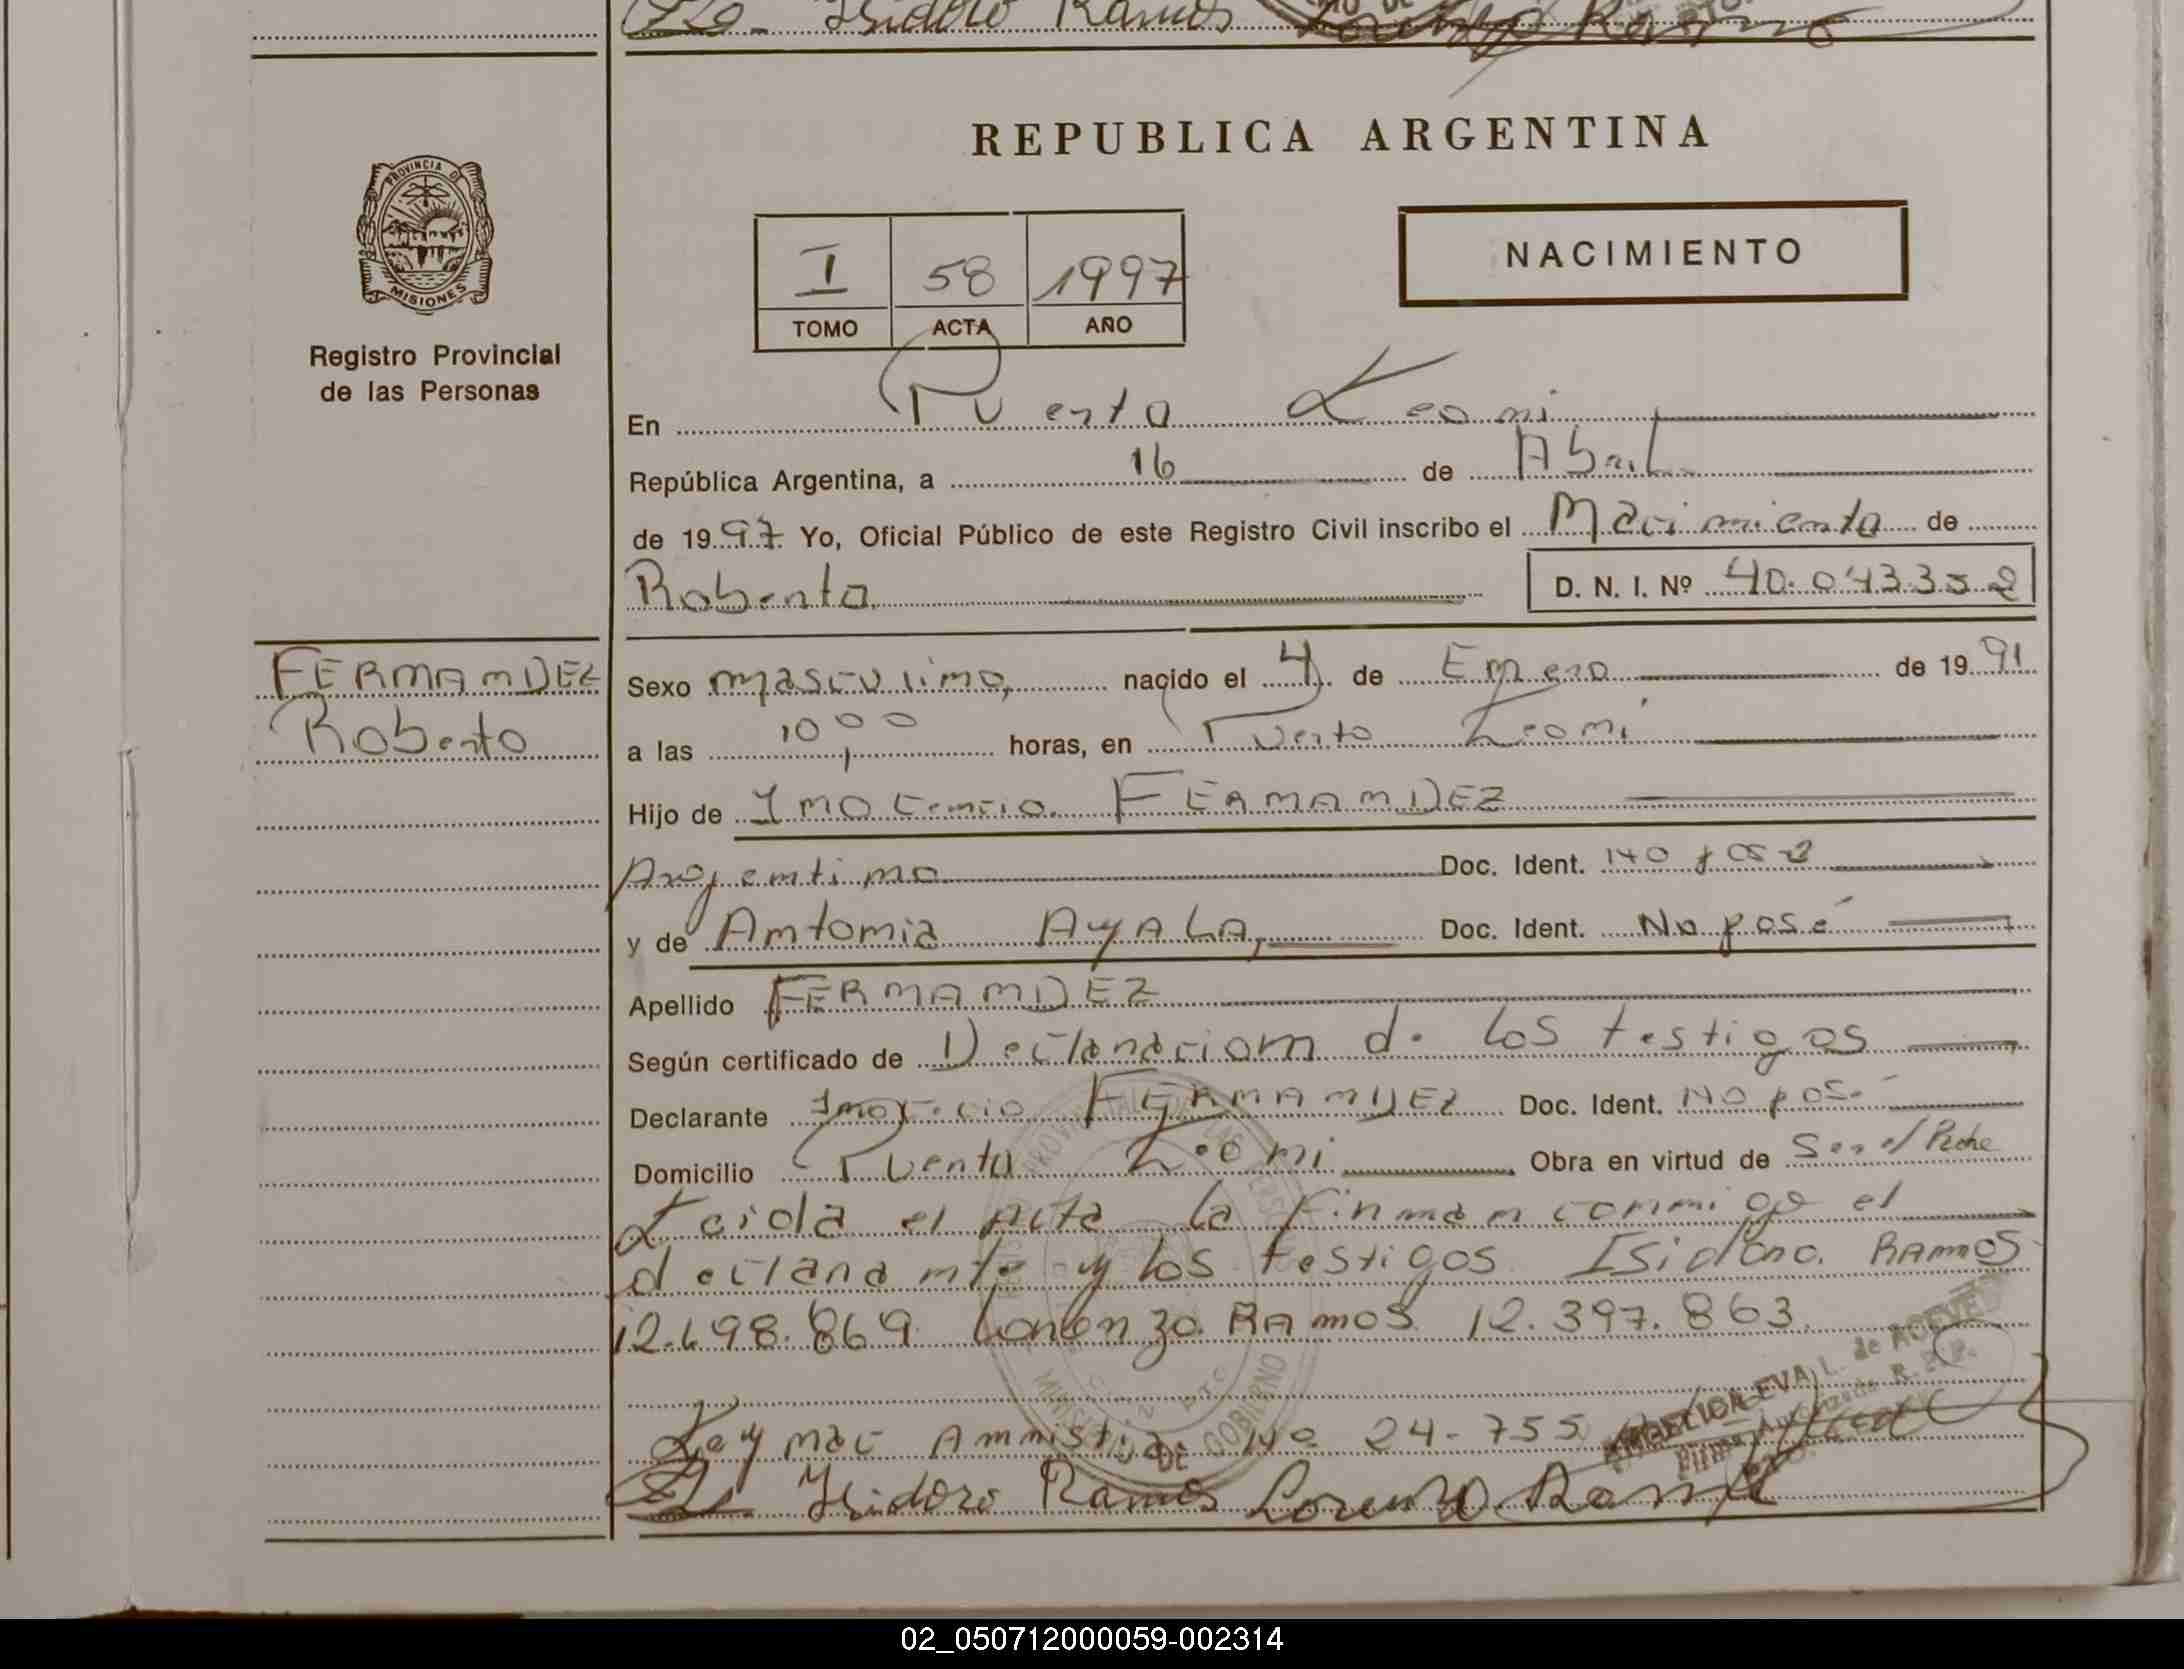 Isidoro Ramos Lorenzo Ramos
PROVINCIA DE
MISIONES
Registro Provincial
de las Personas
REPUBLICA ARGENTINA
NACIMIENTO
I 58 1997
TOMO ACTA AÑO
En Puerto Leoni
República Argentina, a 16 de Abril
de 1997 Yo, Oficial Público de este Registro Civil inscribo el Nacimiento de
Roberto D. N. I. Nº 40.043.352
FERNANDEZ
Roberto
Sexo masculino, nacido el 4 de Enero de 1991
a las 10,00 horas, en Puerto Leoni
Hijo de Inocencio FERNANDEZ
Argentino Doc. Ident. No posé
y de Antonia AYALA, Doc. Ident. No posé
Apellido FERNANDEZ
Según certificado de Declaracion de los testigos
Declarante Inocecio FERNANDEZ Doc. Ident. No posé
Domicilio Puerto Leoni Obra en virtud de Ser el Padre
Leida el Acta la Firman conmigo el
declarante y los testigos Isidoro RAMOS
12.698.869 Lorenzo RAMOS 12.397.863.
Ley Nac Amnistia Nº 24-755
Isidoro Ramos Lorenzo Ramos
ANGELICA EVA L. de ACEVEDO
Firma Autorizada R. P. P.
02_050712000059-002314